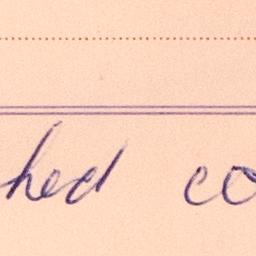 hed co